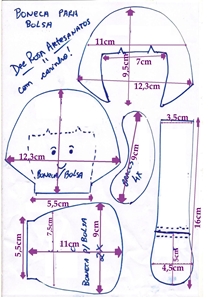 BONECA PARA
BOLSA
Dre Rosa Artesanatos
com carinho!
11cm
7cm
9,5cm
12,3cm
BONECA BOLSA
5,5cm
9cm
BRAÇOS
4X
3,5cm
16cm
5cm
4,5cm
5,5cm
7,5cm
11cm
BONECA P/ BOLSA
2X
9cm